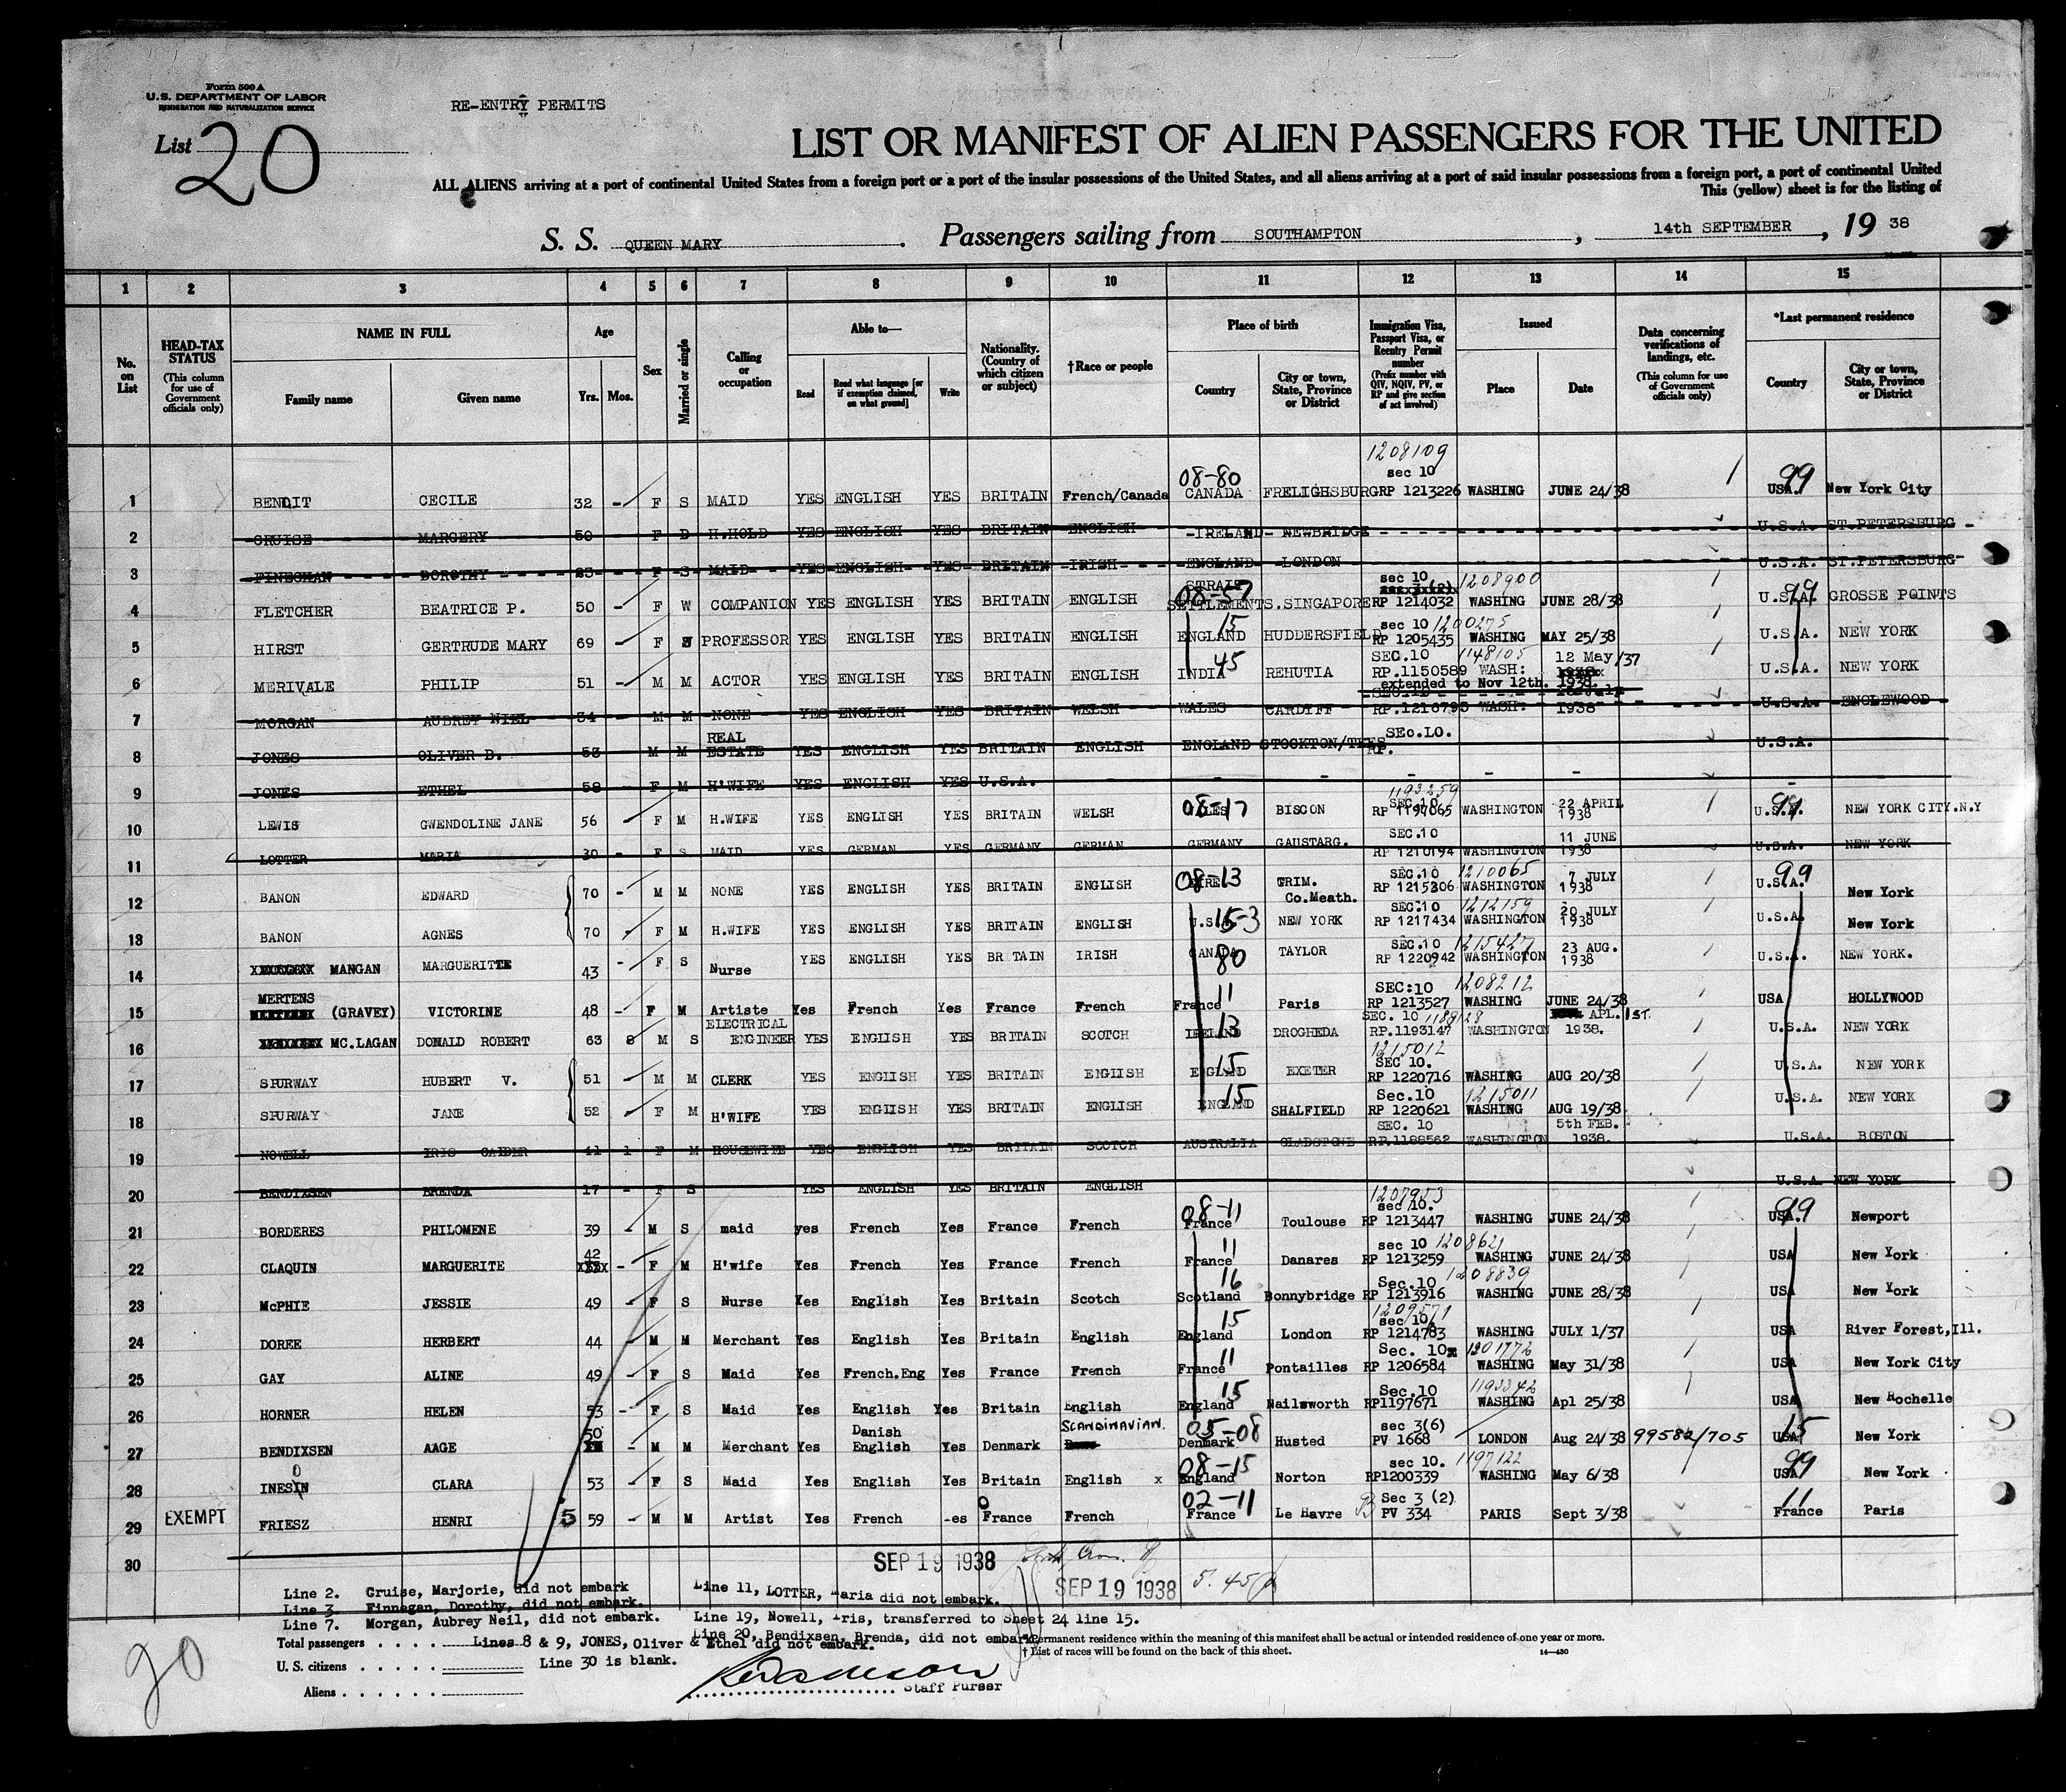 Form 500 A
U.S. DEPARTMENT OF LABOR
IMMIGRATION AND NATURALIZATION SERVICE
RE-ENTRY PERMITS
List 20
LIST OR MANIFEST OF ALIEN PASSENGERS FOR THE UNITED
ALL ALIENS arriving at a port of continental United States from a foreign port or a port of the insular possessions of the United States, and all aliens arriving at a port of said insular possessions from a foreign port, a port of continental United
This (yellow) sheet is for the listing of
S. S. QUEEN MARY. Passengers sailing from SOUTHAMPTON, 14th SEPTEMBER, 19 38
1 2 3 4 5 6 7 8 9 10 11 12 13 14 15
No. on List
HEAD-TAX STATUS (This column for use of Government officials only)
NAME IN FULL Family name Given name
Age Yrs. Mos.
Sex
Married or single
Calling or occupation
Able to— Read Read what language [or if exemption claimed, on what ground] Write
Nationality. (Country of which citizen or subject)
†Race or people
Place of birth Country City or town, State, Province or District
Immigration Visa, Passport Visa, or Reentry Permit number (Prefix number with QIV, NQIV, PV, or RP and give section of act involved)
Issued Place Date
Data concerning verifications of landings, etc. (This column for use of Government officials only)
*Last permanent residence Country City or town, State, Province or District
1208109
08-80 sec 10 99
1 BENOIT CECILE 32 - F S MAID YES ENGLISH YES BRITAIN French/Canada CANADA FRELIGHSBURG RP 1213226 WASHING JUNE 24/38 USA. New York City
2 CRUISE MARGERY 50 - F D H.HOLD YES ENGLISH YES BRITAIN ENGLISH IRELAND NEWBRIDGE U.S.A. ST.PETERSBURG
3 FINEGHAN DOROTHY F S MAID YES ENGLISH YES BRITAIN IRISH ENGLAND LONDON U.S.A. ST.PETERSBURG
sec 10 1208900
4 FLETCHER BEATRICE P. 50 - F W COMPANION YES ENGLISH YES BRITAIN ENGLISH STRAIT SETTLEMENTS. 08-57 SINGAPORE RP 1214032 WASHING JUNE 28/38 U.S.A. 99 GROSSE POINTS
sec 10 1200275
5 HIRST GERTRUDE MARY 69 - F S PROFESSOR YES ENGLISH YES BRITAIN ENGLISH ENGLAND 15 HUDDERSFIELD RP 1205435 WASHING MAY 25/38 U.S.A. NEW YORK
SEC.10 1148105
6 MERIVALE PHILIP 51 - M M ACTOR YES ENGLISH YES BRITAIN ENGLISH INDIA 45 REHUTIA RP.1150589 WASH: 12 May/37 U.S.A. NEW YORK
extended to Nov 12th. 1938.
7 MORGAN AUBREY NIEL 34 - M M NONE YES ENGLISH YES BRITAIN WELSH WALES CARDIFF RP.1210795 WASH: 1938 U.S.A. ENGLEWOOD
8 JONES OLIVER B. 53 M M REAL ESTATE YES ENGLISH YES BRITAIN ENGLISH ENGLAND STOCKTON/TEES SEC.LO. RP. U.S.A.
9 JONES ETHEL 58 - F M H'WIFE YES ENGLISH YES U.S.A. - - - - - -
1193259
10 LEWIS GWENDOLINE JANE 56 - F M H.WIFE YES ENGLISH YES BRITAIN WELSH 08-17 BISCON SEC.10 RP 1197065 WASHINGTON 22 APRIL 1938 U.S.A. 99 NEW YORK CITY.N.Y
11 LOTTER MARIA 30 - F S MAID YES GERMAN YES GERMANY GERMAN GERMANY GAUSTARG. SEC.10 RP 1210194 WASHINGTON 11 JUNE 1938 U.S.A. NEW YORK
12 BANON EDWARD 70 - M M NONE YES ENGLISH YES BRITAIN ENGLISH EIRE 08-13 TRIM. Co.Meath. SEC.10 1210065 RP 1215306 WASHINGTON 7 JULY 1938 U.S.A. 99 New York
13 BANON AGNES 70 - F M H.WIFE YES ENGLISH YES BRITAIN ENGLISH U.S.A. 15-3 NEW YORK SEC:10 1212159 RP 1217434 WASHINGTON 20 JULY 1938 U.S.A. New York
14 MANGAN MARGUERITTE 43 - F S Nurse YES ENGLISH YES BR TAIN IRISH CANADA 80 TAYLOR SEC.10 1215427 RP 1220942 WASHINGTON 23 AUG. 1938 U.S.A. NEW YORK.
15 MERTENS (GRAVEY) VICTORINE 48 - F M Artiste Yes French Yes France French France 11 Paris SEC:10 1208212 RP 1213527 WASHING JUNE 24/38 USA HOLLYWOOD
16 MC.LAGAN DONALD ROBERT 63 8 M S ELECTRICAL ENGINEER YES ENGLISH YES BRITAIN SCOTCH IRELAND 13 DROGHEDA SEC. 10 1189128 RP.1193147 WASHINGTON APL. 1ST. 1938. U.S.A. NEW YORK
17 SPURWAY HUBERT V. 51 - M M CLERK YES ENGLISH YES BRITAIN ENGLISH ENGLAND 15 EXETER 1215012 SEC 10. RP 1220716 WASHING AUG 20/38 U.S.A. NEW YORK
18 SPURWAY JANE 52 - F M H'WIFE YES ENGLISH YES BRITAIN ENGLISH ENGLAND 15 SHALFIELD Sec.10 1215011 RP 1220621 WASHING AUG 19/38. U.S.A. NEW YORK
19 NOWELL IRIS CAIDER 41 1 F M HOUSEWIFE YES ENGLISH YES BRITAIN SCOTCH AUSTRALIA GLADSTONE SEC. 10 RP.1188562 WASHINGTON 5th FEB. 1938. U.S.A. BOSTON
20 BENDIXSEN BRENDA 17 - F S YES ENGLISH YES BRITAIN ENGLISH U.S.A. NEW YORK
21 BORDERES PHILOMENE 39 - M S maid yes French Yes France French France 08-11 Toulouse 1207953 sec 10. RP 1213447 WASHING JUNE 24/38 USA. 99 Newport
22 CLAQUIN MARGUERITE 42 - F M H'wife Yes French Yes France French France 11 Danares sec 10 1208621 RP 1213259 WASHING JUNE 24/38 USA New York
23 McPHIE JESSIE 49 - F S Nurse Yes English Yes Britain Scotch Scotland 16 Bonnybridge Sec.10 1208839 RP 1213916 WASHING JUNE 28/38 USA New York
24 DOREE HERBERT 44 - M M Merchant Yes English Yes Britain English England 15 London 1209571 sec 10 RP 1214783 WASHING JULY 1/37 USA River Forest,Ill.
25 GAY ALINE 49 - F S Maid Yes French.Eng Yes France French France 11 Pontailles Sec. 10 1201772 RP 1206584 WASHING May 31/38 USA New York City
26 HORNER HELEN 53 - F S Maid Yes English Yes Britain English England 15 Nailsworth Sec.10 1193342 RP1197671 WASHING Apl 25/38 USA New Rochelle
27 BENDIXSEN AAGE 50 - M M Merchant Yes Danish English Yes Denmark SCANDINAVIAN. Denmark 05-08 Husted sec 3(6) PV 1668 LONDON Aug 24/38 99582/705 USA 15 New York
28 INESON CLARA 53 - F S Maid Yes English Yes Britain English x England 08-15 Norton sec 10. 1197122 RP1200339 WASHING May 6/38 USA 99 New York
29 EXEMPT FRIESZ HENRI 5 59 - M M Artist Yes French -es France French France 02-11 Le Havre Sec 3 (2) PV 334 PARIS Sept 3/38 France 11 Paris
30
SEP 19 1938
SEP 19 1938 5.45p
Line 2. Cruise, Marjorie, did not embark
Line 3. Finnegan, Dorothy, did not embark.
Line 7. Morgan, Aubrey Neil, did not embark.
Line 11, LOTTER, Maria did not embark.
Line 19, Nowell, Iris, transferred to Sheet 24 line 15.
Line 20, Bendixsen, Brenda, did not embark.
Total passengers . . . . Lines 8 & 9, JONES, Oliver & Ethel did not embark.
*Permanent residence within the meaning of this manifest shall be actual or intended residence of one year or more.
† List of races will be found on the back of this sheet.
14—430
U. S. citizens . . . . . Line 30 is blank.
Aliens . . . . . .
Staff Purser
20